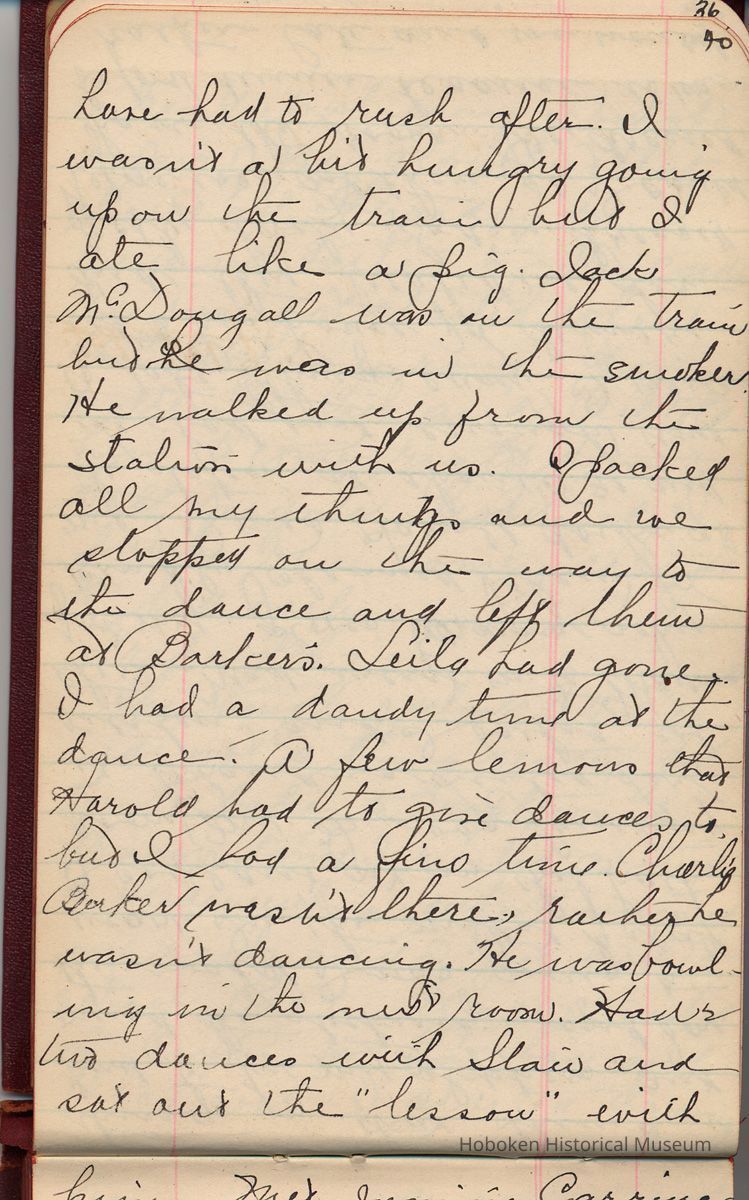 26
40
have had to rush after. I
wasn't a bit hungry going
up on the train but I
ate like a pig. Jack
McDougall was on the train
but he was in the smoker.
He walked up from the
station with us. I packed
all my things and we
stopped on the way to
the dance and left them
at Barker's. Leila had gone.
I had a dandy time at the
dance. A few lemons that
Harold had to give dances to,
but I had a fine time. Charlie
Barker wasn't there, rather he
wasn't dancing. He was bowl-
ing in the next room. Had
two dances with Stan and
sat out the "lesson" with
Hoboken Historical Museum
him. Met